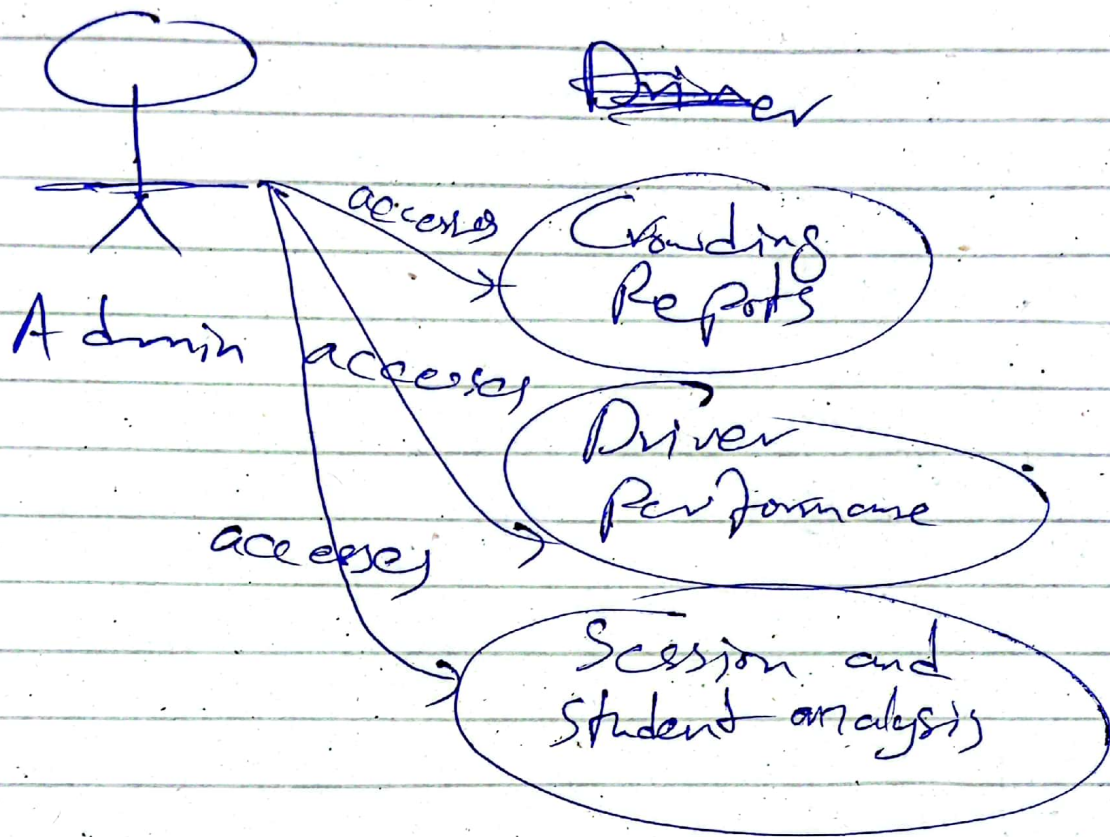 Driver
accesses
Crowding
Reports
Admin
accesses
Driver
Performance
accesses
Session and
Student analysis